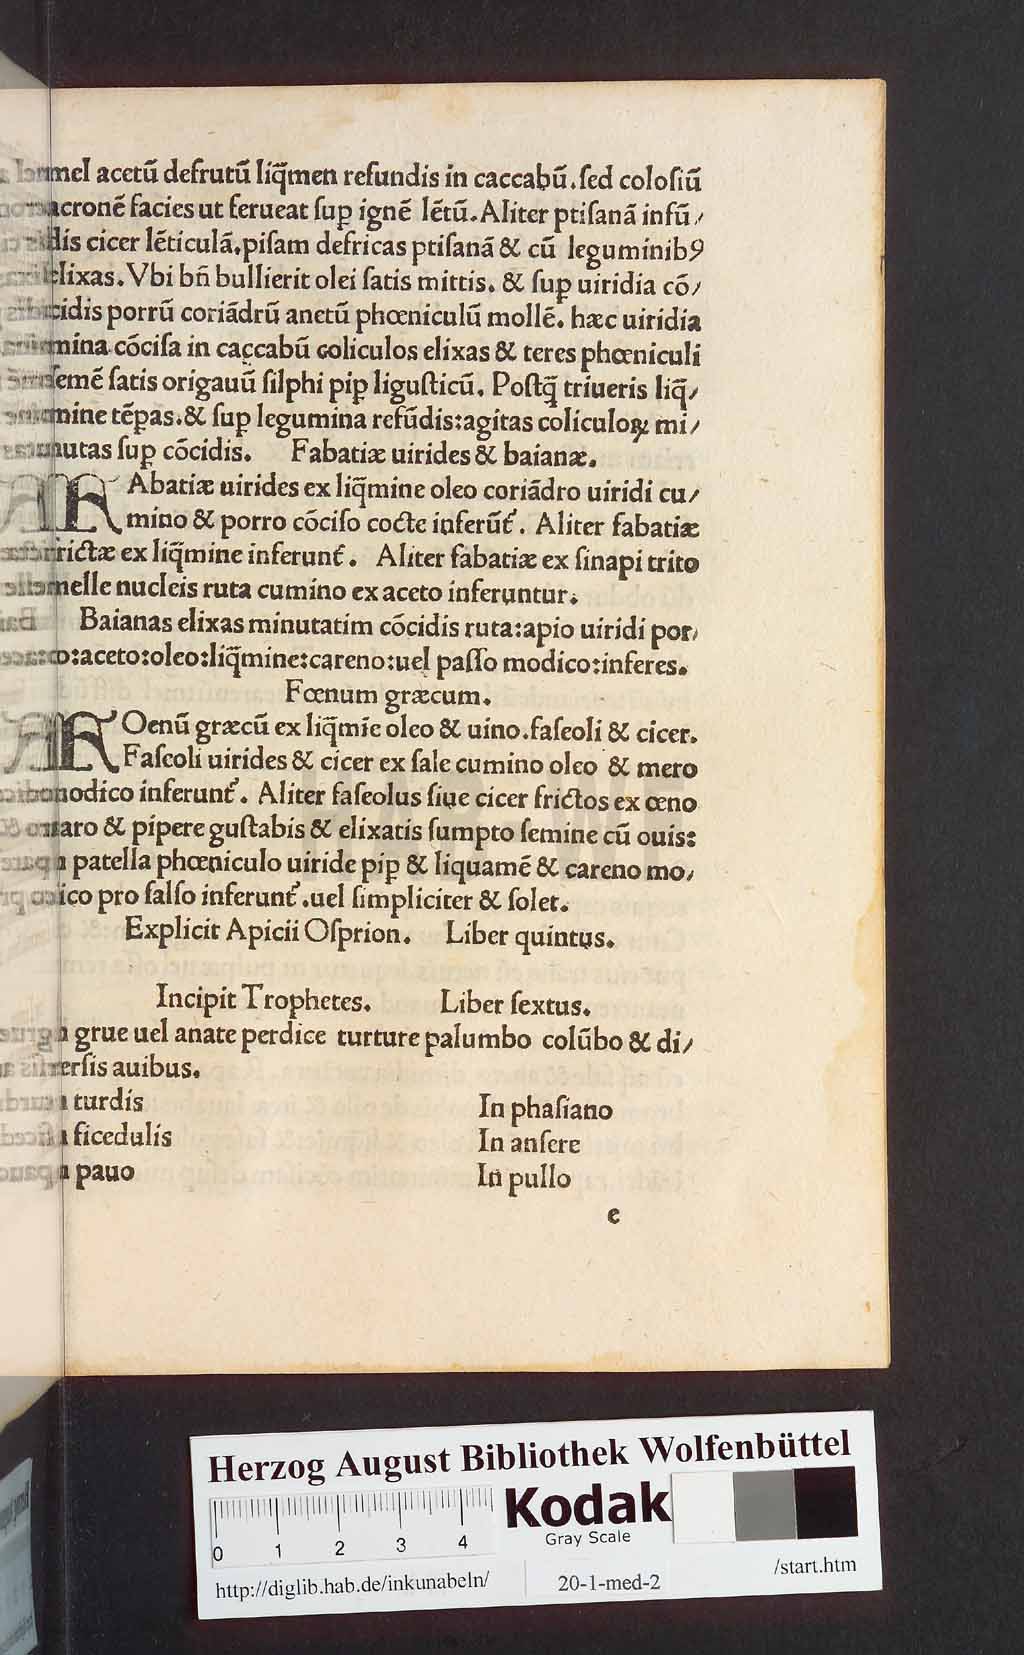 mel acetū defrutū liq̄men refundis in caccabū. sed colosiū
acronē facies ut ferueat sup̲ ignē lētū. Aliter ptisanā infū⸗
dis cicer lēticulā. pisam defricas ptisanā & cū leguminibꝯ
elixas. Vbi bn̄ bullierit olei satis mittis. & sup̲ uiridia cō⸗
cidis porrū coriādrū anetū phœniculū mollē. hæc uiridia
mina cōcisa in caccabū coliculos elixas & teres phœniculi
semē satis origauū silphi pip̲ ligusticū. Postq̄ triueris liq̄⸗
mine tēpas. & sup̲ legumina refūdis: agitas coliculoꝝ mi⸗
nutas sup̲ cōcidis. Fabatiæ uirides & baianæ.
Abatiæ uirides ex liq̄mine oleo coriādro uiridi cu⸗
mino & porro cōciso cocte inferūt᷑. Aliter fabatiæ
frictæ ex liq̄mine inferunt᷑. Aliter fabatiæ ex sinapi trito
melle nucleis ruta cumino ex aceto inferuntur.
Baianas elixas minutatim cōcidis ruta: apio uiridi por⸗
co: aceto: oleo: liq̄mine: careno: uel passo modico: inferes.
Fœnum græcum.
Oenū græcū ex liq̄mīe oleo & uino. faseoli & cicer.
Fascoli uirides & cicer ex sale cumino oleo & mero
modico inferunt᷑. Aliter faseolus siue cicer frictos ex œno
garo & pipere gustabis & elixatis sumpto semine cū ouis:
patella phœniculo uiride pip̲ & liquamē & careno mo⸗
ico pro salso inferunt᷑. uel simpliciter & solet.
Explicit Apicii Osprion. Liber quintus.
Incipit Trophetes. Liber sextus.
grue uel anate perdice turture palumbo colūbo & di⸗
ersis auibus.
turdis In phasiano
ficedulis In ansere
pauo In pullo
e
HAB-WF
Herzog August Bibliothek Wolfenbüttel
Kodak
Gray Scale
0 1 2 3 4
http://diglib.hab.de/inkunabeln/ 20-1-med-2 /start.htm